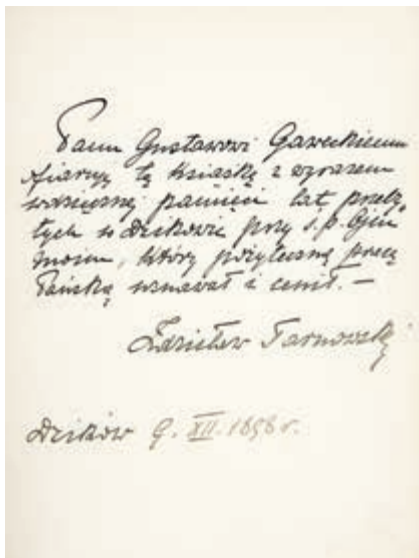 Panu Gustawowi Gaweckiemu
ofiaruję tę książkę z wyrazem
wdzięcznej pamięci lat przeby-
tych w Dzikowie przy ś.p. Ojcu
moim, który pożyteczną pracę
Pańską uznawał i cenił. —
Zdzisław Tarnowski
Dzików 9. XII. 1898 r.